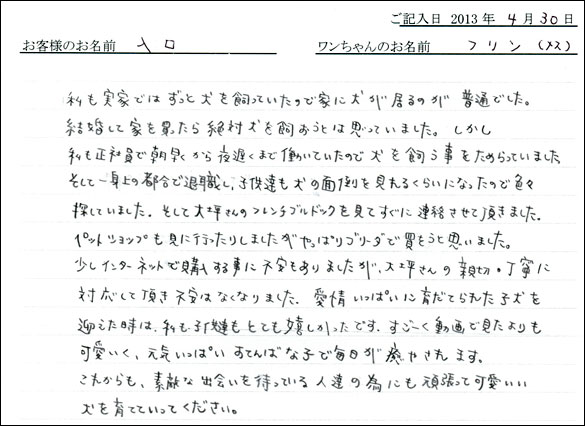 ご記入日 2013 年 4 月 30 日
お客様のお名前 入口 ワンちゃんのお名前 フリン (メス)
私も実家ではずっと犬を飼っていたので家に犬が居るのが普通でした。
結婚して家を買ったら絶対犬を飼おうとは思っていました。しかし
私も正社員で朝早くから夜遅くまで働いていたので犬を飼う事をためらっていました
そして一身上の都合で退職し、子供達も犬の面倒を見れるくらいになったので色々
探していました。そして大坪さんのフレンチブルドックを見てすぐに連絡させて頂きました。
ペットショップも見に行ったりしましたがやっぱりブリーダで買おうと思いました。
少しインターネットで購入する事に不安もありましたが、大坪さんの親切・丁寧に
対応して頂き不安はなくなりました。愛情いっぱいに育だてられた子犬を
迎えた時は、私も子供達もとても嬉しかったです。すごーく動画で見たよりも
可愛いく、元気いっぱいすてんばな子で毎日が癒やされます。
これからも、素敵な出会いを待っている人達の為にも頑張って可愛いい
犬を育てていってください。